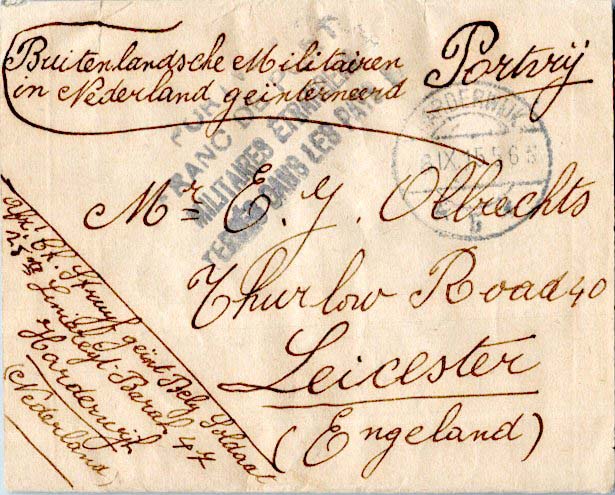 Buitenlandsche Militairen
in Nederland geinterneerd
Portvrij
FRANC DE PORT
MILITAIRES ÉTRANGERS
DANS LES PAYS
HARDERWIJK
IX 15 5-6
b
Mr E. J. Olbrechts
Thurlow Road 40
Leicester
(Engeland)
geint Belg Soldaat
Barak 47
Harderwijk
(Nederland)